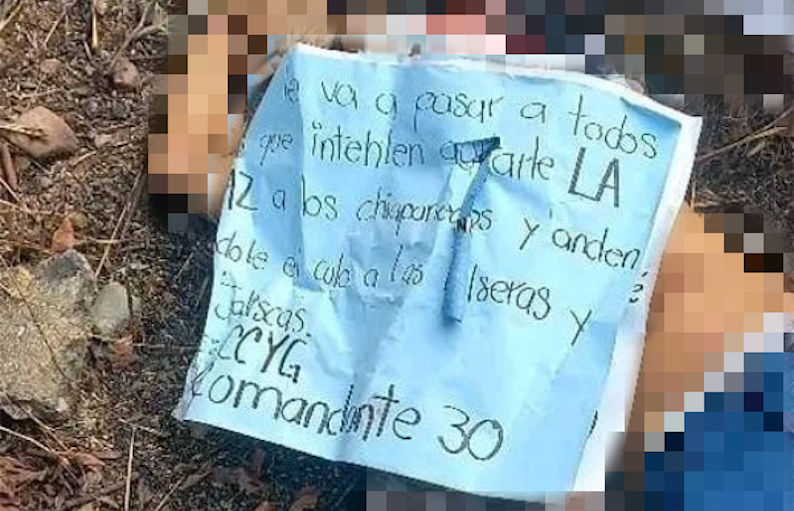 va a pasar a todos
que intehlen arte LA
a los chiapanecos y anden
dole el culo a las lseras y
Jarscas.
CCYG
Comandante 30